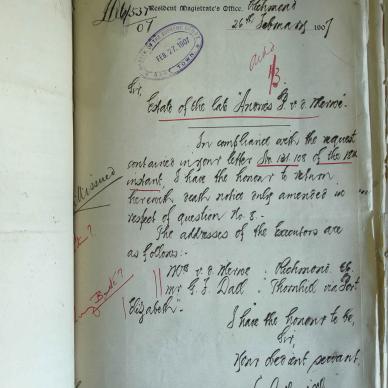 Resident Magistrate's Office, Richmond
26th February 1907
FEB. 27. 1907
CAPE TOWN
Sir,
Estate of the late Andries P v. d. Merwe.
In compliance with the request
contained in your letter No. of the
instant, I have the honour to return
herewith death notice duly amended in
respect of question No. 5.
The addresses of the Executors are
as follows:-
Mrs v. d. Merwe : Richmond
Mr G. F. : Thornhill via Port
Elizabeth".
I have the honour to be,
Sir,
Your obedient servant,